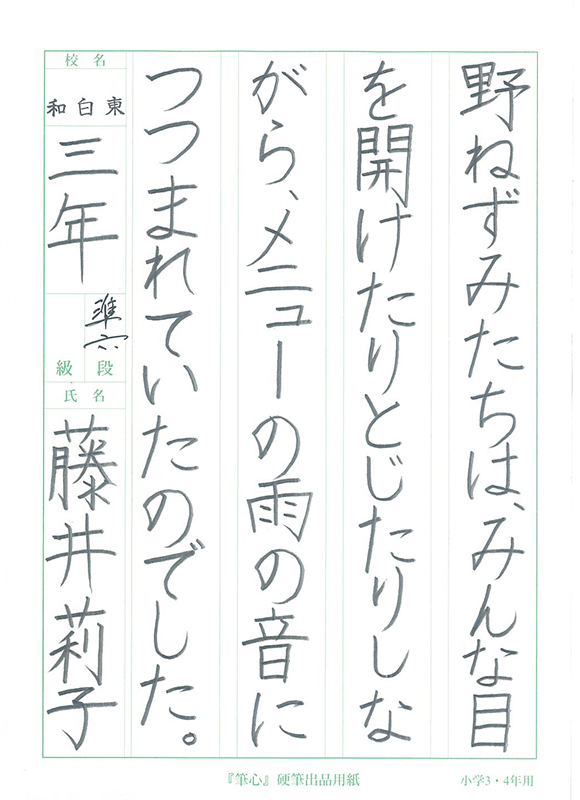 野ねずみたちは、みんな目
を開けたりとじたりしな
がら、メニューの雨の音に
つつまれていたのでした。
校名
和白東
三年
準六
段級
氏名
藤井莉子
『筆心』硬筆出品用紙
小学3・4年用